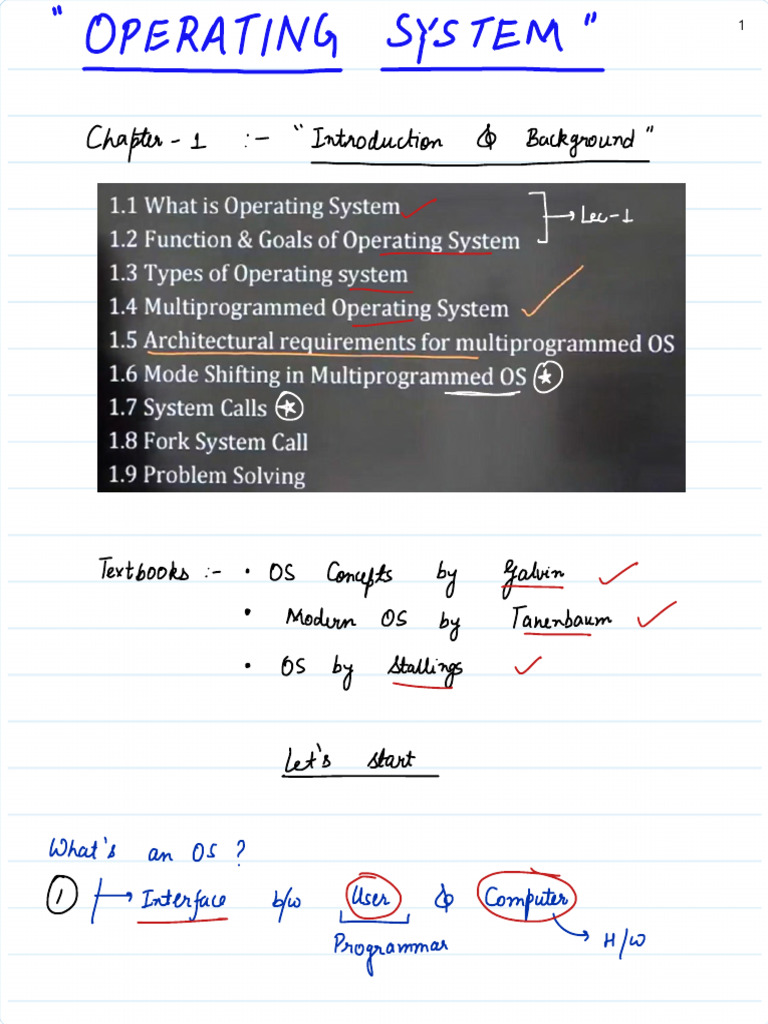 " OPERATING SYSTEM "
1
Chapter - 1 :- " Introduction & Background "
1.1 What is Operating System
1.2 Function & Goals of Operating System
→ Lec-1
1.3 Types of Operating system
1.4 Multiprogrammed Operating System
1.5 Architectural requirements for multiprogrammed OS
1.6 Mode Shifting in Multiprogrammed OS
1.7 System Calls
1.8 Fork System Call
1.9 Problem Solving
Textbooks :- • OS Concepts by Galvin
• Modern OS by Tanenbaum
• OS by Stallings
Let's start
What's an OS ?
1 → Interface b/w User & Computer
Programmar → H/W